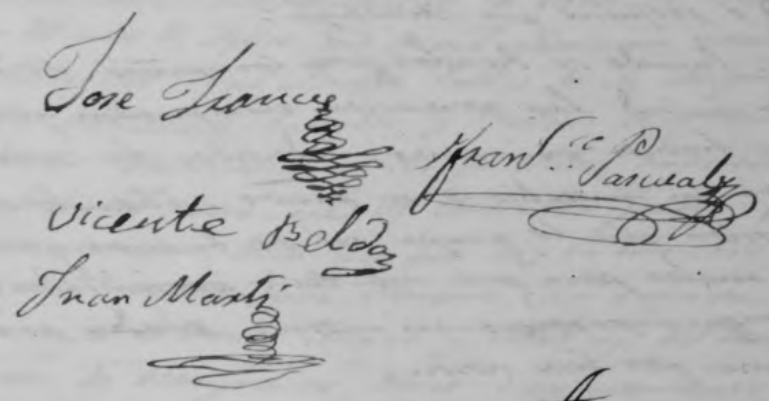 Jose Frances
Fran.co Pascual
Vicente Belda
Juan Marti